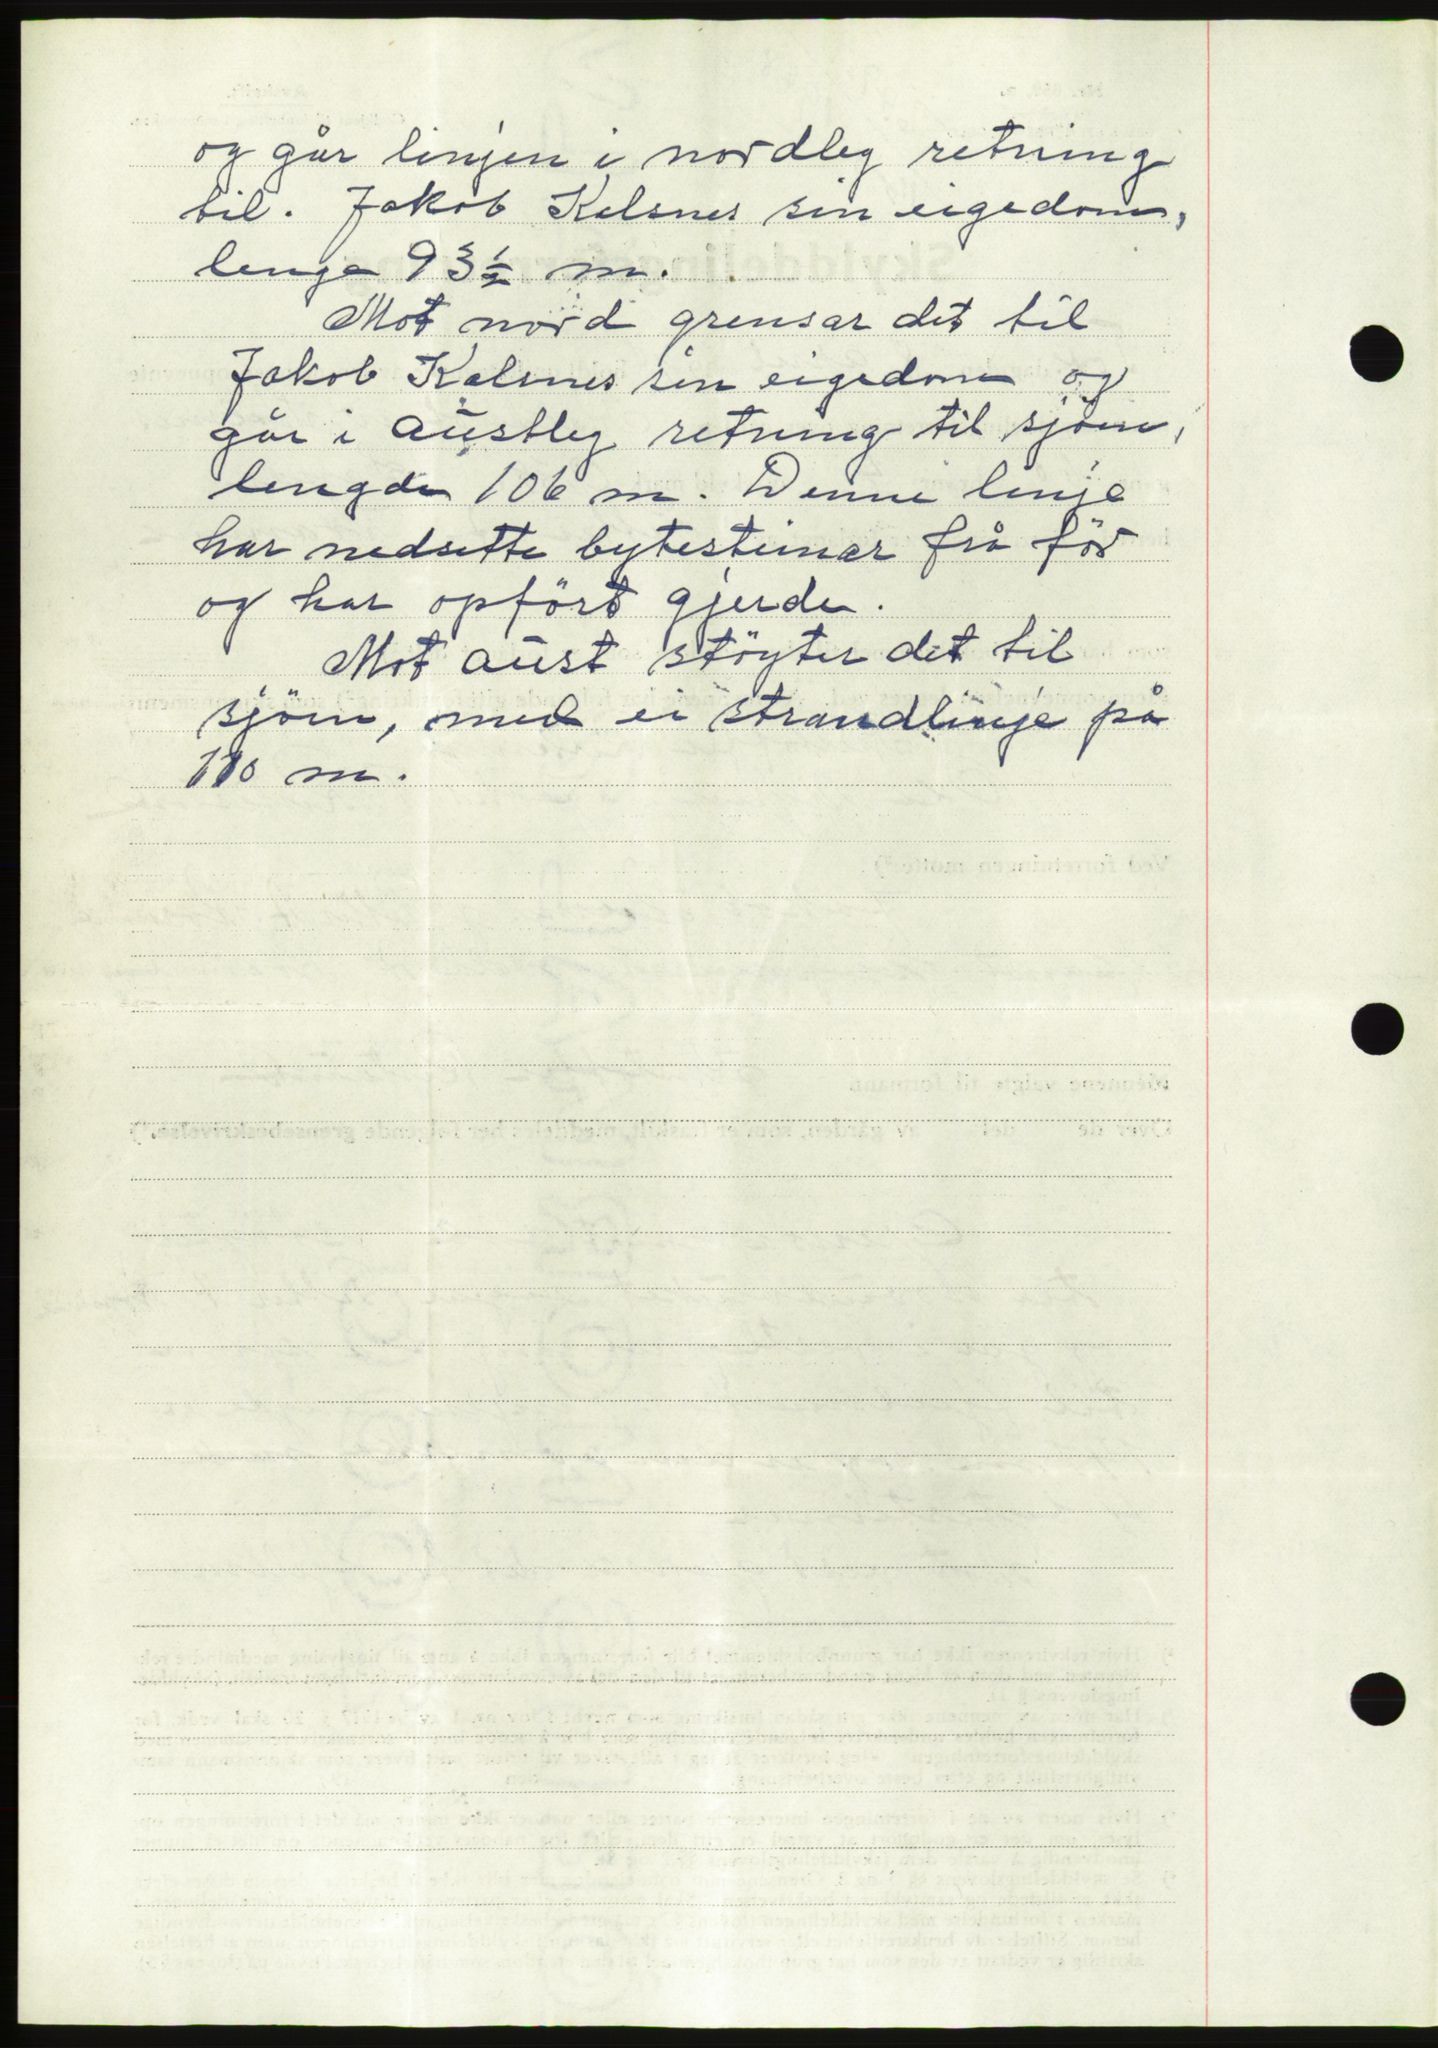 og går linjen i nordleg retning
til. Jakob Kalsnes sin eigedom,
lenge 93½ m.
Mot nord grensar det til
Jakob Kalsnes sin eigedom og
går i austleg retning til sjöen,
lengde 106 m. Denne linje
har nedsette bytesteinar frå för
og har opfört gjerde.
Mot aust stöyter det til
sjöen, med ei strandlinje på
110 m.